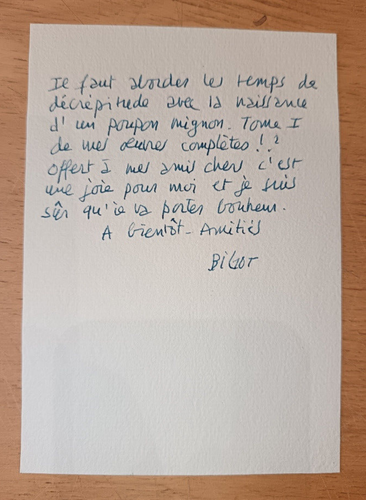 Il faut aborder les temps de
décrépitude avec la naissance
d'un poupon mignon. Tome I
de mes œuvres complètes !.?
offert à mes amis chers c'est
une joie pour moi et je suis
sûr qu'il va porter bonheur.
A bientôt - Amitiés
BiGOT